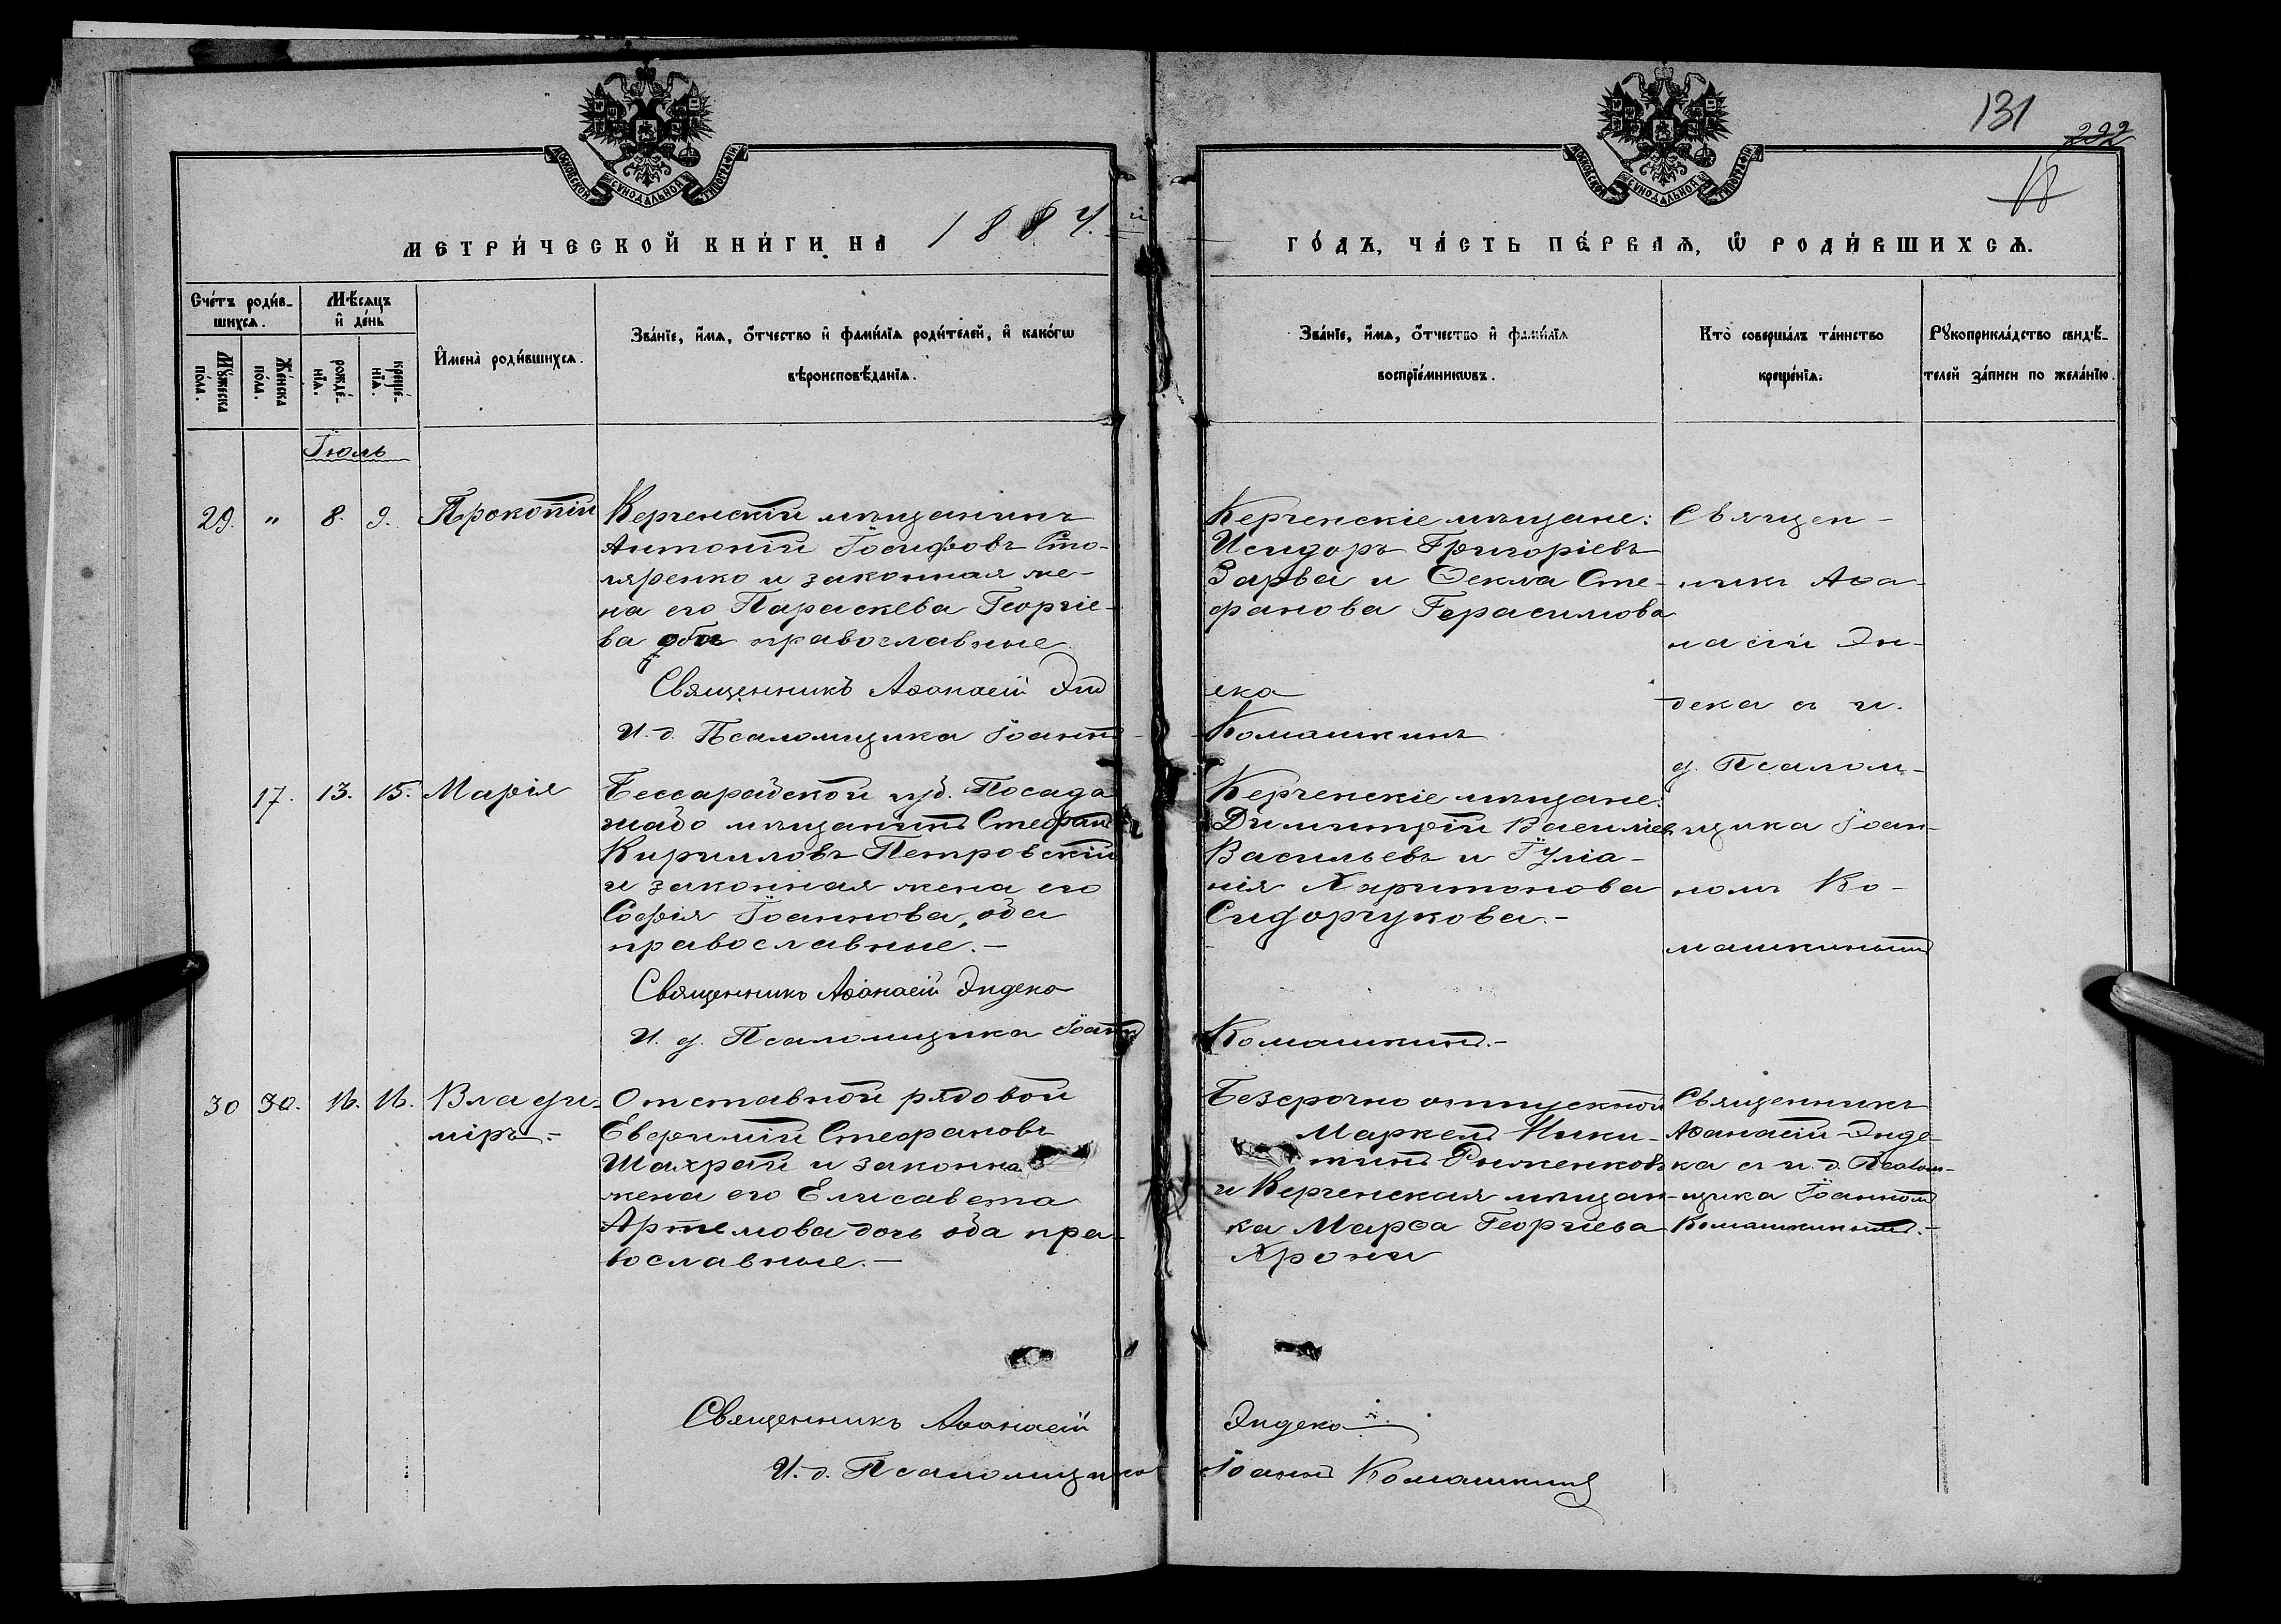 131
202
МОСКОВСКОЙ СѴНОДАЛЬНОЙ ТИПОГРАФІИ
МОСКОВСКОЙ СѴНОДАЛЬНОЙ ТИПОГРАФІИ
МЕТРИ́ЧЕСКОЙ КНИ́ГИ НА 1884.й
ГО́ДЪ, ЧА́СТЬ ПЕ́РВАЯ, Ѿ РОДИ́ВШИХСЯ.
Сче́тъ роди́в-
шихся.
Мѣ́сяцъ
и҆ де́нь
Му́жеска
по́ла.
Же́нска
по́ла.
рожде́-
нїа.
креще́-
нїа.
И҆мена̀ роди́вшихся.
Зва́нїе, и҆́мя, о҆́тчество и҆ фами́лїя роди́телей, и҆ како́гѡ
вѣроисповѣ́данїя.
Зва́нїе, и҆́мя, о҆́тчество и҆ фами́лїя
воспрїе́мникѡвъ.
Кто̀ соверша́лъ та́инство
креще́нїя.
Рꙋкоприкла́дство свидѣ́-
телей за́писи по жела́нїю.
Іюль
29. " 8. 9. Прокопій
Керченскій мѣщанинъ
Антоній Іосифовъ Сто-
ляренко и законная же-
на его Параскева Георгіе-
ва оба православные.
Священникъ Аѳанасій Энд
И. д. Псаломщика Іоаннъ
Керченскіе мѣщане:
Исидоръ Григоріевъ
Зарва и Ѳекла Сте-
фанова Герасимова
ека
Комашкинъ
Священ-
никъ Аѳа-
насій Эн-
дека съ и.
д. Псалом-
щика Іоан-
номъ Ко-
машкинымъ
17. 13. 15. Марія
Бессарабской губ. Посада
мѣщанинъ Стефанъ
Кирилловъ Петровскій
и законная жена его
Софія Іоаннова, оба
православные.-
Священникъ Аѳанасій Эндека
И. д. Псаломщика Іоаннъ
Керченскіе мѣщане:
Димитрій Василіев
Васильевъ и Іуліа-
нія Харитонова
Сидорчукова.-
Комашкинъ.-
30 30. 16. 16. Влади-
міръ.-
Отставной рядовой
Евфимій Стефановъ
Шахрай и законная
жена его Елисавета
Артемова дочь оба пра-
вославные.-
Безсрочно отпускной
Маркелъ Ники-
тинъ Рыженковъ
и Керченская мѣщан-
ка Марѳа Георгіева
Хрони
Священникъ
Аѳанасій Энде-
ка съ и. д. Псалом-
щика Іоанномъ
Комашкинымъ.-
Священникъ Аѳанасій Эндека
И. д. Псаломщика Іоаннъ Комашкинъ